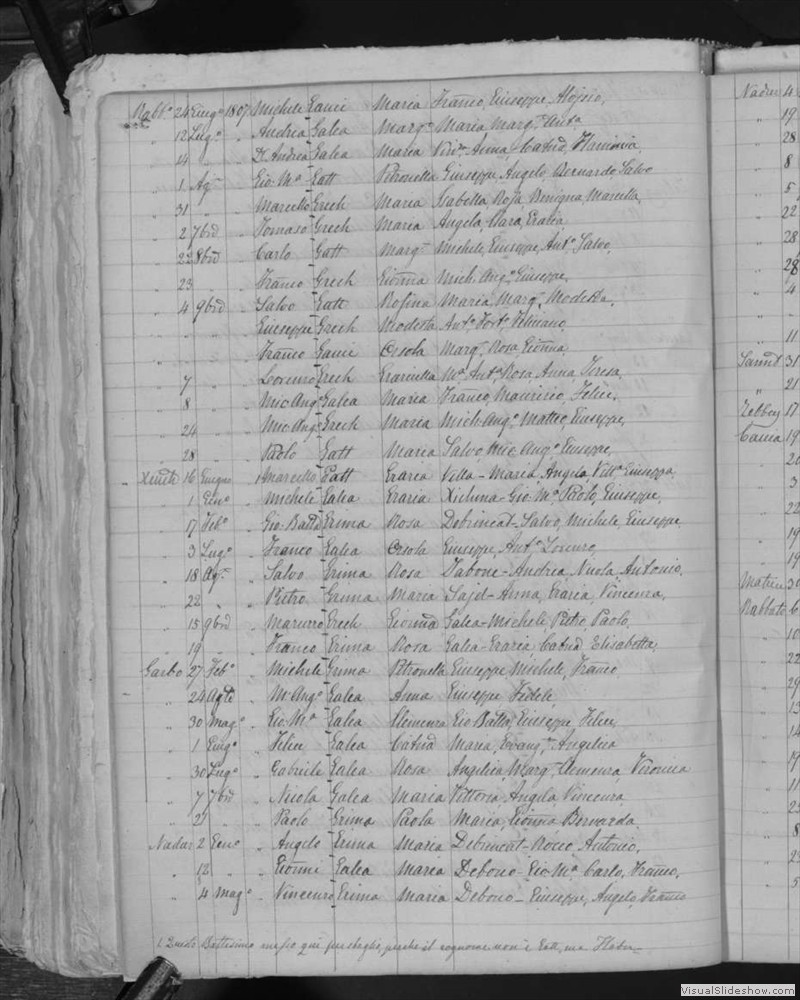 Rabto 24 Giug° 1807 Michele Gauci Maria Franco, Giuseppe, Aloisio,
" 12 Lug° " Andrea Galea Marga Maria Marga Anta
14 " " Dr Andrea Galea Maria Anna Catna Flaminia,
1 Ag° " Gio: Ma Gatt Petronella Giuseppe, Angelo, Bernardo, Salvo
31 " " Marcello Grech Maria Isabella, Rosa, Benigna, Marcella,
2 7bre " Tomaso Grech Maria Angela, Clara, Grazia
22 8bre " Carlo Gatt Marga Michele, Giuseppe, Ant° Salvo,
23 " " Franco Grech Gionna Mich: Ang° Giuseppe,
4 9bre " Salvo Gatt Rosina Maria, Marga Modesta,
" " " Giuseppe Grech Modesta Ant° Fort° Feliciano,
" " " Franco Gauci Orsola Marga Rosa, Gionna,
7 " " Lorenzo Grech Graziella Ma Anta Rosa, Anna, Teresa,
8 " " Mic Ang° Galea Maria Franco, Maurizio, Felice,
24 " " Mic Ang° Grech Maria Mich: Ang° Matteo, Giuseppe,
28 " " Paolo Gatt Maria Salvo, Mic Ang° Giuseppe,
" 16 Giugno 1 Marcello Gatt Grazia Vella - Maria, Angela, Vitta Giuseppa
" 1 Gen° " Michele Galea Grazia Xicluna - Gio: Ma Paolo, Giuseppe,
" 17 Feb° " Gio: Batta Grima Rosa Debrincat - Salvo, Michele, Giuseppe,
3 Lug° " Franco Galea Orsola Giuseppe, Ant° Lorenzo,
18 Ag° " Salvo Grima Rosa Tabone - Andrea, Nicola, Antonio,
22 " " Pietro Grima Maria Sajd - Anna, Grazia, Vincenza,
15 9bre " Marcello Grech Gionna Galea - Michele, Pietro, Paolo,
19 " " Franco Grima Rosa Galea - Grazia Catna Elisabetta,
Garbo 27 Feb° " Michele Grima Petronella Giuseppe Michele, Franco
" 24 Ag° " M: Ang° Galea Anna Giuseppe Fidele,
" 30 Mag° " Gio: Ma Galea Clemenza Gio Batta, Giuseppe, Felice,
" 1 Giug° " Felice Galea Catna Maria, Evang° Angelica
" 30 Lug° " Gabriele Galea Rosa Angelica, Marga Clemenza, Veronica
" 7 7bre " Nicola Galea Maria Vittoria, Angela, Vincenza,
" 21 " " Paolo Grima Paola Maria, Gionna Bernarda.
Nadur 2 Gen° " Angelo Grima Maria Debrincat - Rocco Antonio,
" 12 " " Gionni Galea Maria Debono - Gio: Ma Carlo, Franco,
" 4 Mag° " Vincenzo Grima Maria Debono - Giuseppe, Angelo, Franco
1. Questo Battesimo messo qui per sbaglio, perchè il cognome non è Gatt, ma
Nadur 4
19
28
8
5
22
28
28
4
11
Sannt 31
21
Zebbug 17
Caccia 19
20
3
22
19
19
30
Rabbato 6
10
22
29
13
14
17
11
23
8
2
5
VisualSlideshow.com